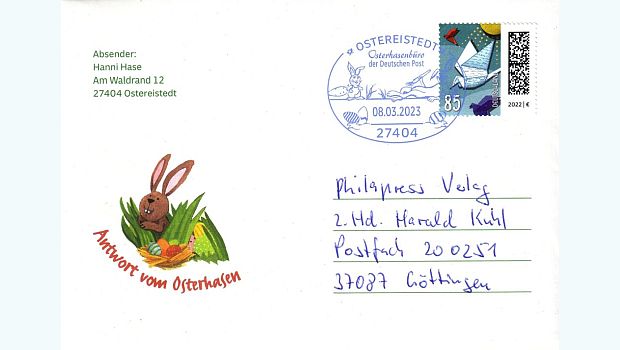 Absender:
Hanni Hase
Am Waldrand 12
27404 Ostereistedt
OSTEREISTEDT
Osterhasenbüro
der Deutschen Post
08.03.2023
27404
85
2022 | €
Philapress Verlag
z.Hd. Harald Kuhl
Postfach 20 0251
37087 Göttingen
Antwort vom Osterhasen